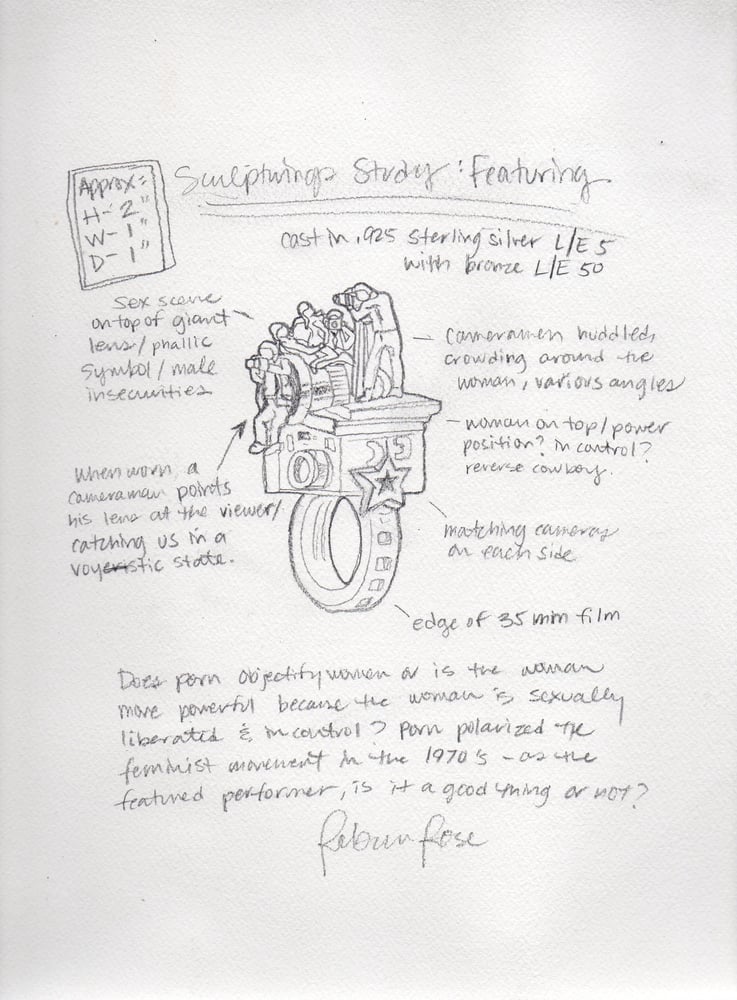 Approx=
H- 2"
W- 1"
D- 1"
Sculptrings Study: Featuring
cast in .925 sterling silver L/E 5
with bronze L/E 50
Sex scene
on top of giant
lens/phallic
symbol/male
insecurities
cameramen huddled,
crowding around the
woman, various angles
woman on top/power
position? in control?
reverse cowboy.
When worn, a
cameraman points
his lens at the viewer/
catching us in a
voyeristic state.
matching cameras
on each side
edge of 35 mm film
Does porn objectify women or is the woman
more powerful because the woman is sexually
liberated & in control? Porn polarized the
feminist movement in the 1970's - as the
featured performer, is it a good thing or not?
Rose